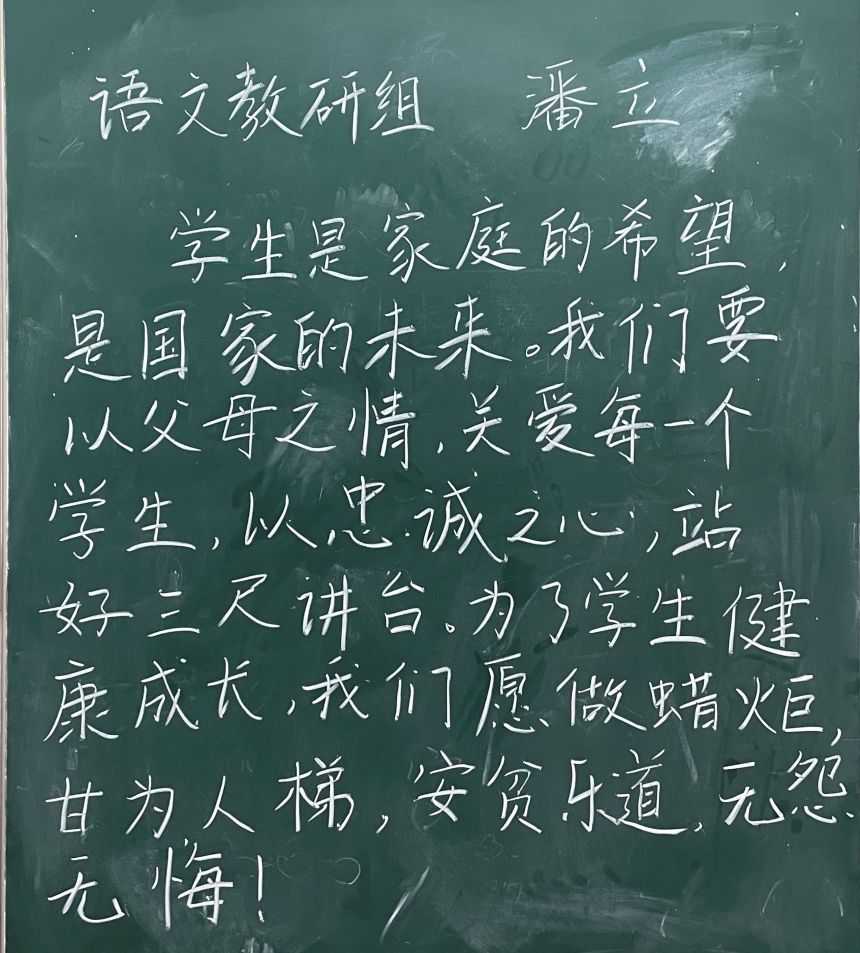 语文教研组 潘立
学生是家庭的希望，
是国家的未来。我们要
以父母之情，关爱每一个
学生，以忠诚之心，站
好三尺讲台。为了学生健
康成长，我们愿做蜡炬，
甘为人梯，安贫乐道，无怨
无悔！